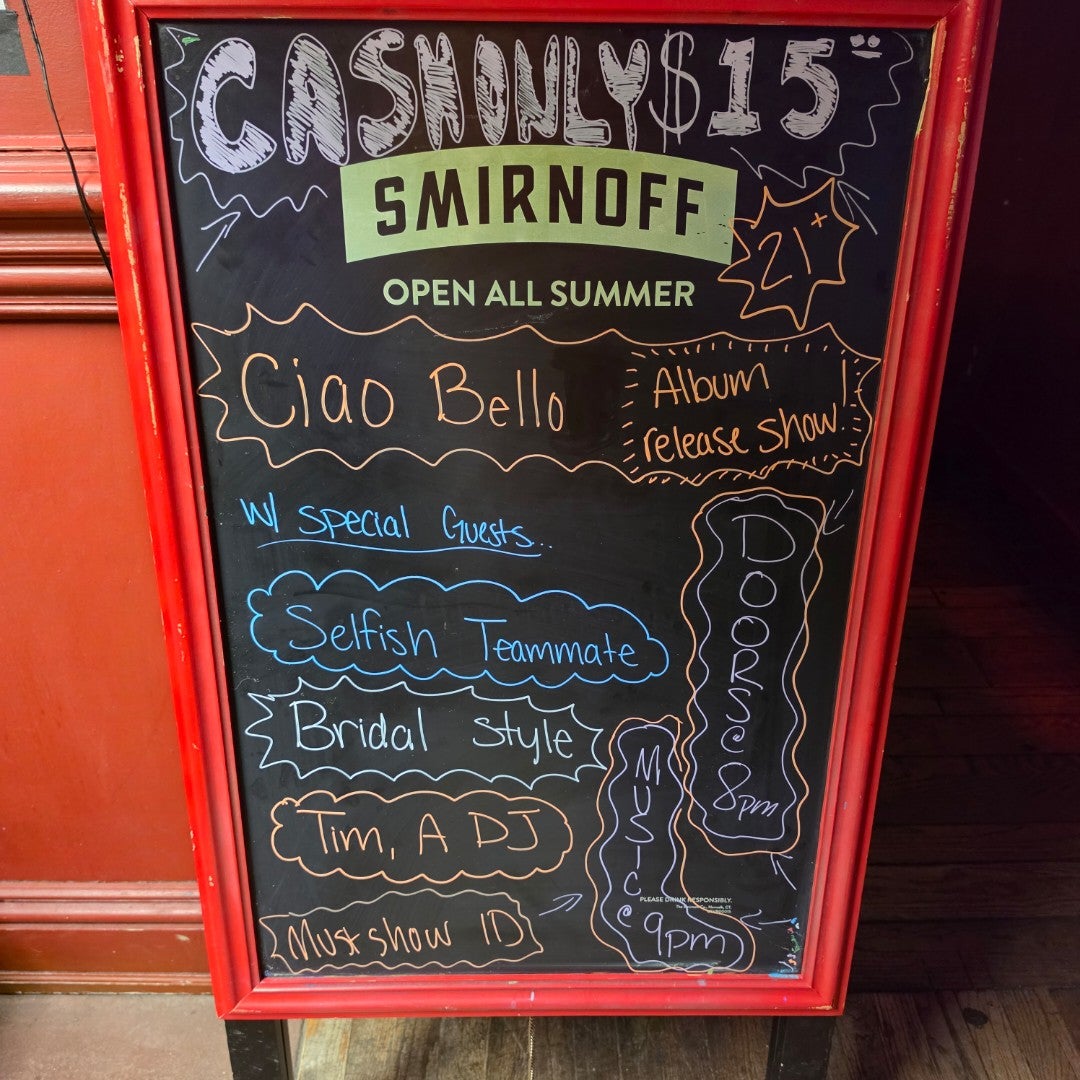 CASH ONLY $15
SMIRNOFF
21+
OPEN ALL SUMMER
Ciao Bello
Album
release show!
w/ special Guests..
Selfish Teammate
Bridal Style
Tim, A DJ
Must show ID
DOORS @ 8pm
MUSIC @ 9pm
PLEASE DRINK RESPONSIBLY.